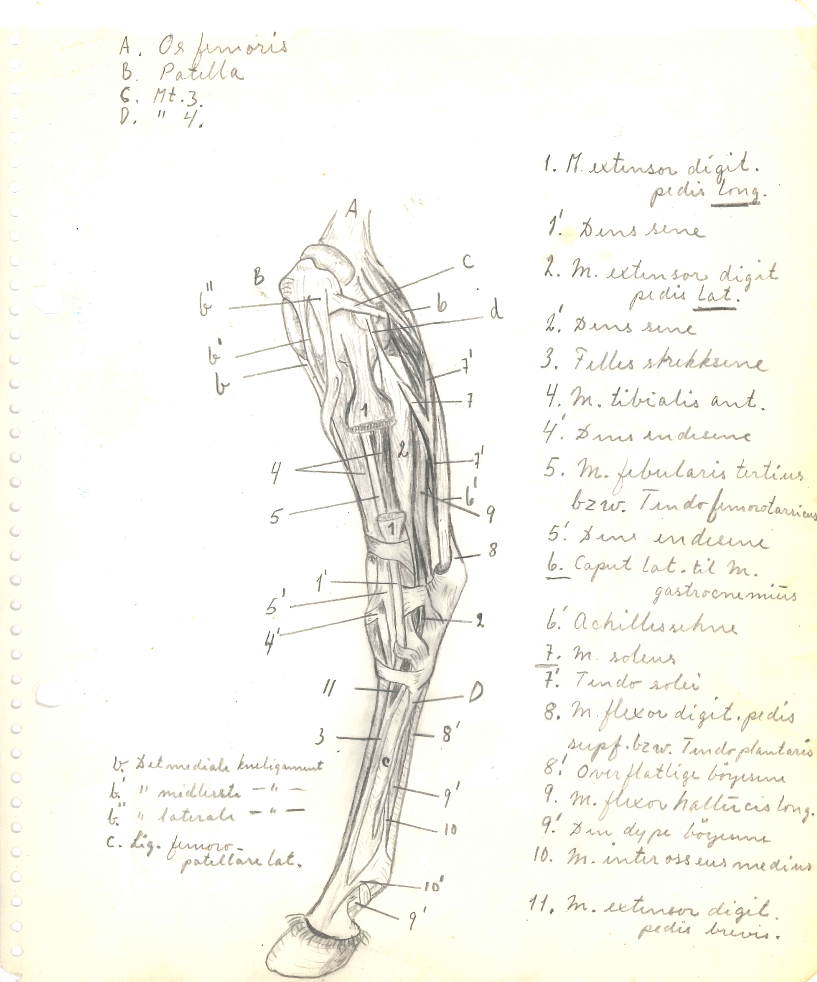 A. Os femoris
B. Patella
C. Mt. 3.
D. " 4.
1. M. extensor digit.
pedis long.
1'. Dens sene
2. M. extensor digit
pedis lat.
2'. Dens sene
3. Felles strekksene
4. M. tibialis ant.
4'. Dens endesene
5. M. fibularis tertius
bzw. Tendo femorotarsicus
5'. Dens endesene
6. Caput lat. til M.
gastrocnemius
6'. Achillessehne
7. M. soleus
7'. Tendo solei
8. M. flexor digit. pedis
supf. bzw. Tendo plantaris
8'. Overflatlige böyesene
9. M. flexor hallucis long.
9'. Den dype böyesene
10. M. interosseus medius
11. M. extensor digit.
pedis brevis.
A
B
b"
b'
b
c
b
d
7'
7
1
2
7'
4
6'
5
9
1
8
1'
5'
4'
2
11
D
3
8'
c
9'
10
10'
9'
b. Det mediale kneligament
b' " midlerste - " -
b" " laterale - " -
c. Lig. femoro-
patellare lat.